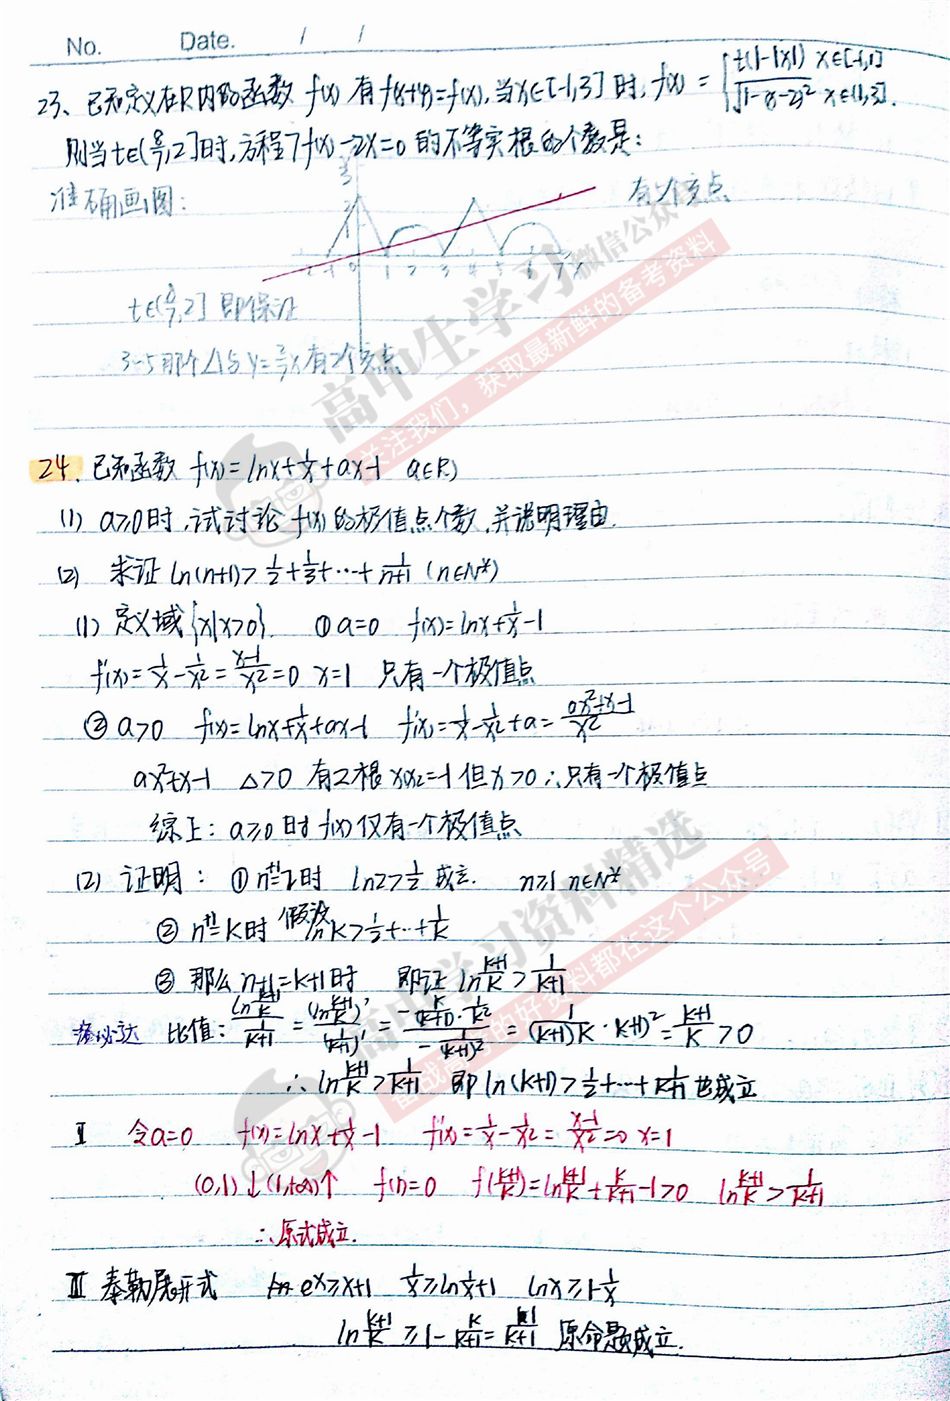 No. Date. / /
23、已知定义在R内的函数 f(x) 有 f(x+4)=f(x), 当x∈[-1,3]时, f(x) = { t(1-|x|) x∈[-1,1]
√1-(x-2)² x∈(1,3].
则当t∈(8/7,2]时,方程7f(x)-2x=0的不等实根的个数是:
准确画图:
t∈(8/7,2] 即保证
3-5那个△与y=2/7x有2个交点
24、已知函数 f(x)=lnx+1/x+ax-1 (a∈R)
(1) a≥0时,试讨论 f(x)的极值点个数,并说明理由.
(2) 求证 ln(n+1)>1/2+1/3+…+1/(n+1) (n∈N*)
(1) 定义域{x|x>0}. ①a=0 f(x)=lnx+1/x-1
f'(x)=1/x-1/x²=(x-1)/x²=0 x=1 只有一个极值点
②a>0 f(x)=lnx+1/x+ax-1 f'(x)=1/x-1/x²+a=(ax²+x-1)/x²
ax²+x-1 △>0 有2根 但x>0 ∴只有一个极值点
综上: a≥0时f(x)仅有一个极值点
(2) 证明: ①n+1=2时 ln2>1/2 成立. n≥1 n∈N*
②n+1=k时 假设lnk>1/2+…+1/k
③那么n+1=k+1时 即证 ln(k+1)/k>1/(k+1)
洛必达 比值:
= 1/((k+1)k)·(k+1)²=(k+1)/k>0
∴ln(k+1)/k>1/(k+1) 即ln(k+1)>1/2+…+1/(k+1)也成立
Ⅱ 令a=0 f(x)=lnx+1/x-1 f'(x)=1/x-1/x²=(x-1)/x²=0 x=1
(0,1)↓(1,+∞)↑ f(1)=0 f((k+1)/k)=ln(k+1)/k+k/(k+1)-1>0 ln(k+1)/k>1/(k+1)
∴原式成立.
Ⅲ 泰勒展开式 e^x≥x+1 1/x≥ln1/x+1 lnx≥1-1/x
ln(k+1)/k≥1-k/(k+1)=1/(k+1) 原命题成立.
高中生学习 微信公众号
关注我们,获取最新鲜的备考资料
高中学习资料精选